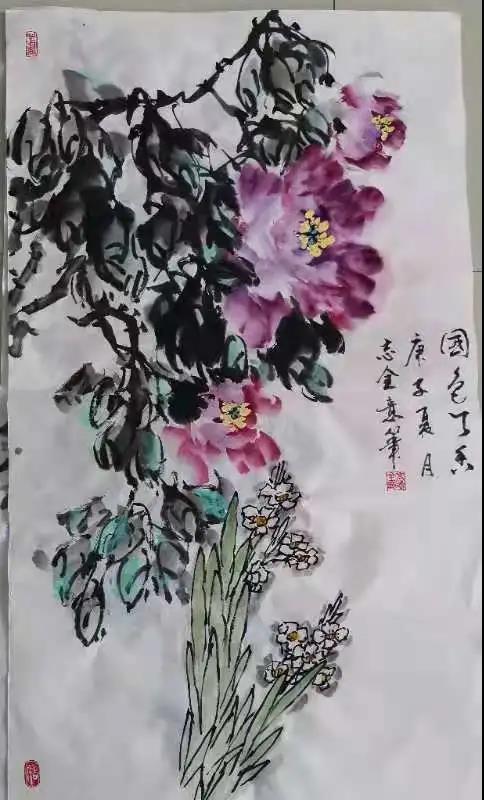 国色天香
庚子夏月
志全意笔